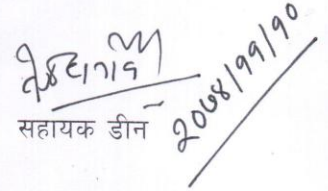 सहायक डीन
२०७४/११/१०